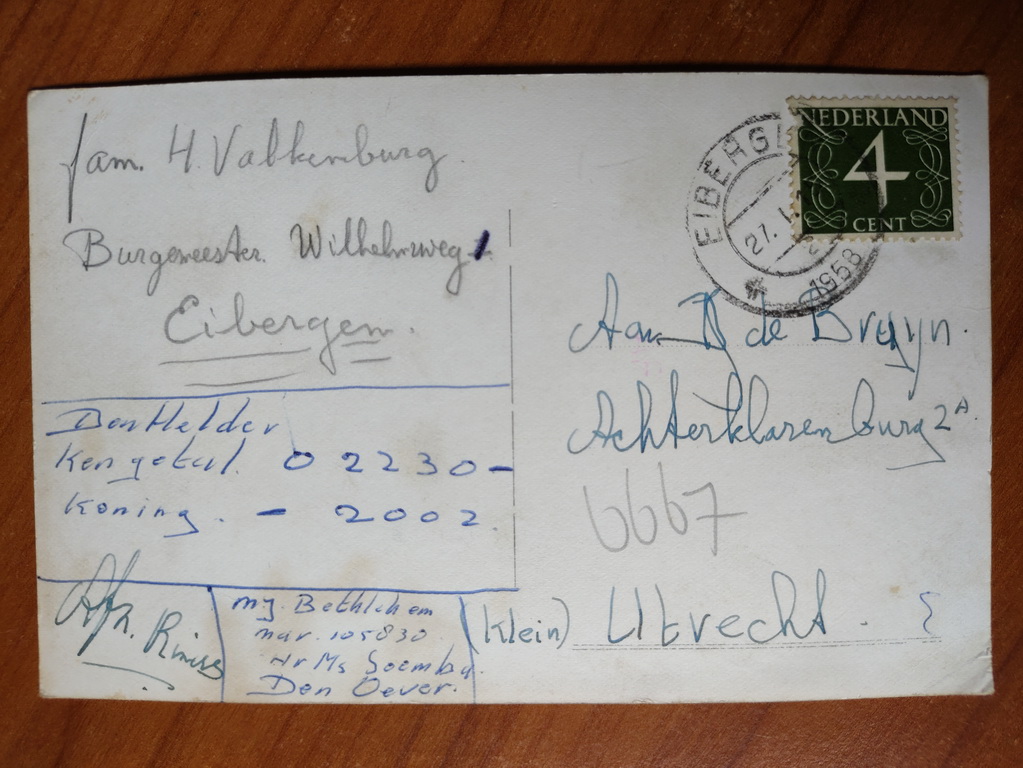 fam. H. Valkenburg.
Burgemeester. Wilhelmweg 1.
Eibergen.
Den Helder
Kengetal. 02230-
Koning. - 2002
Afz.
mj. Bethlehem
mar. 105830
Hr Ms Soemba.
Den Oever.
NEDERLAND
4
CENT
EIBERG
27. 1
1958
Aan de Bruyn.
Achterklarenburg 2A
6667
(Klein) Utrecht.